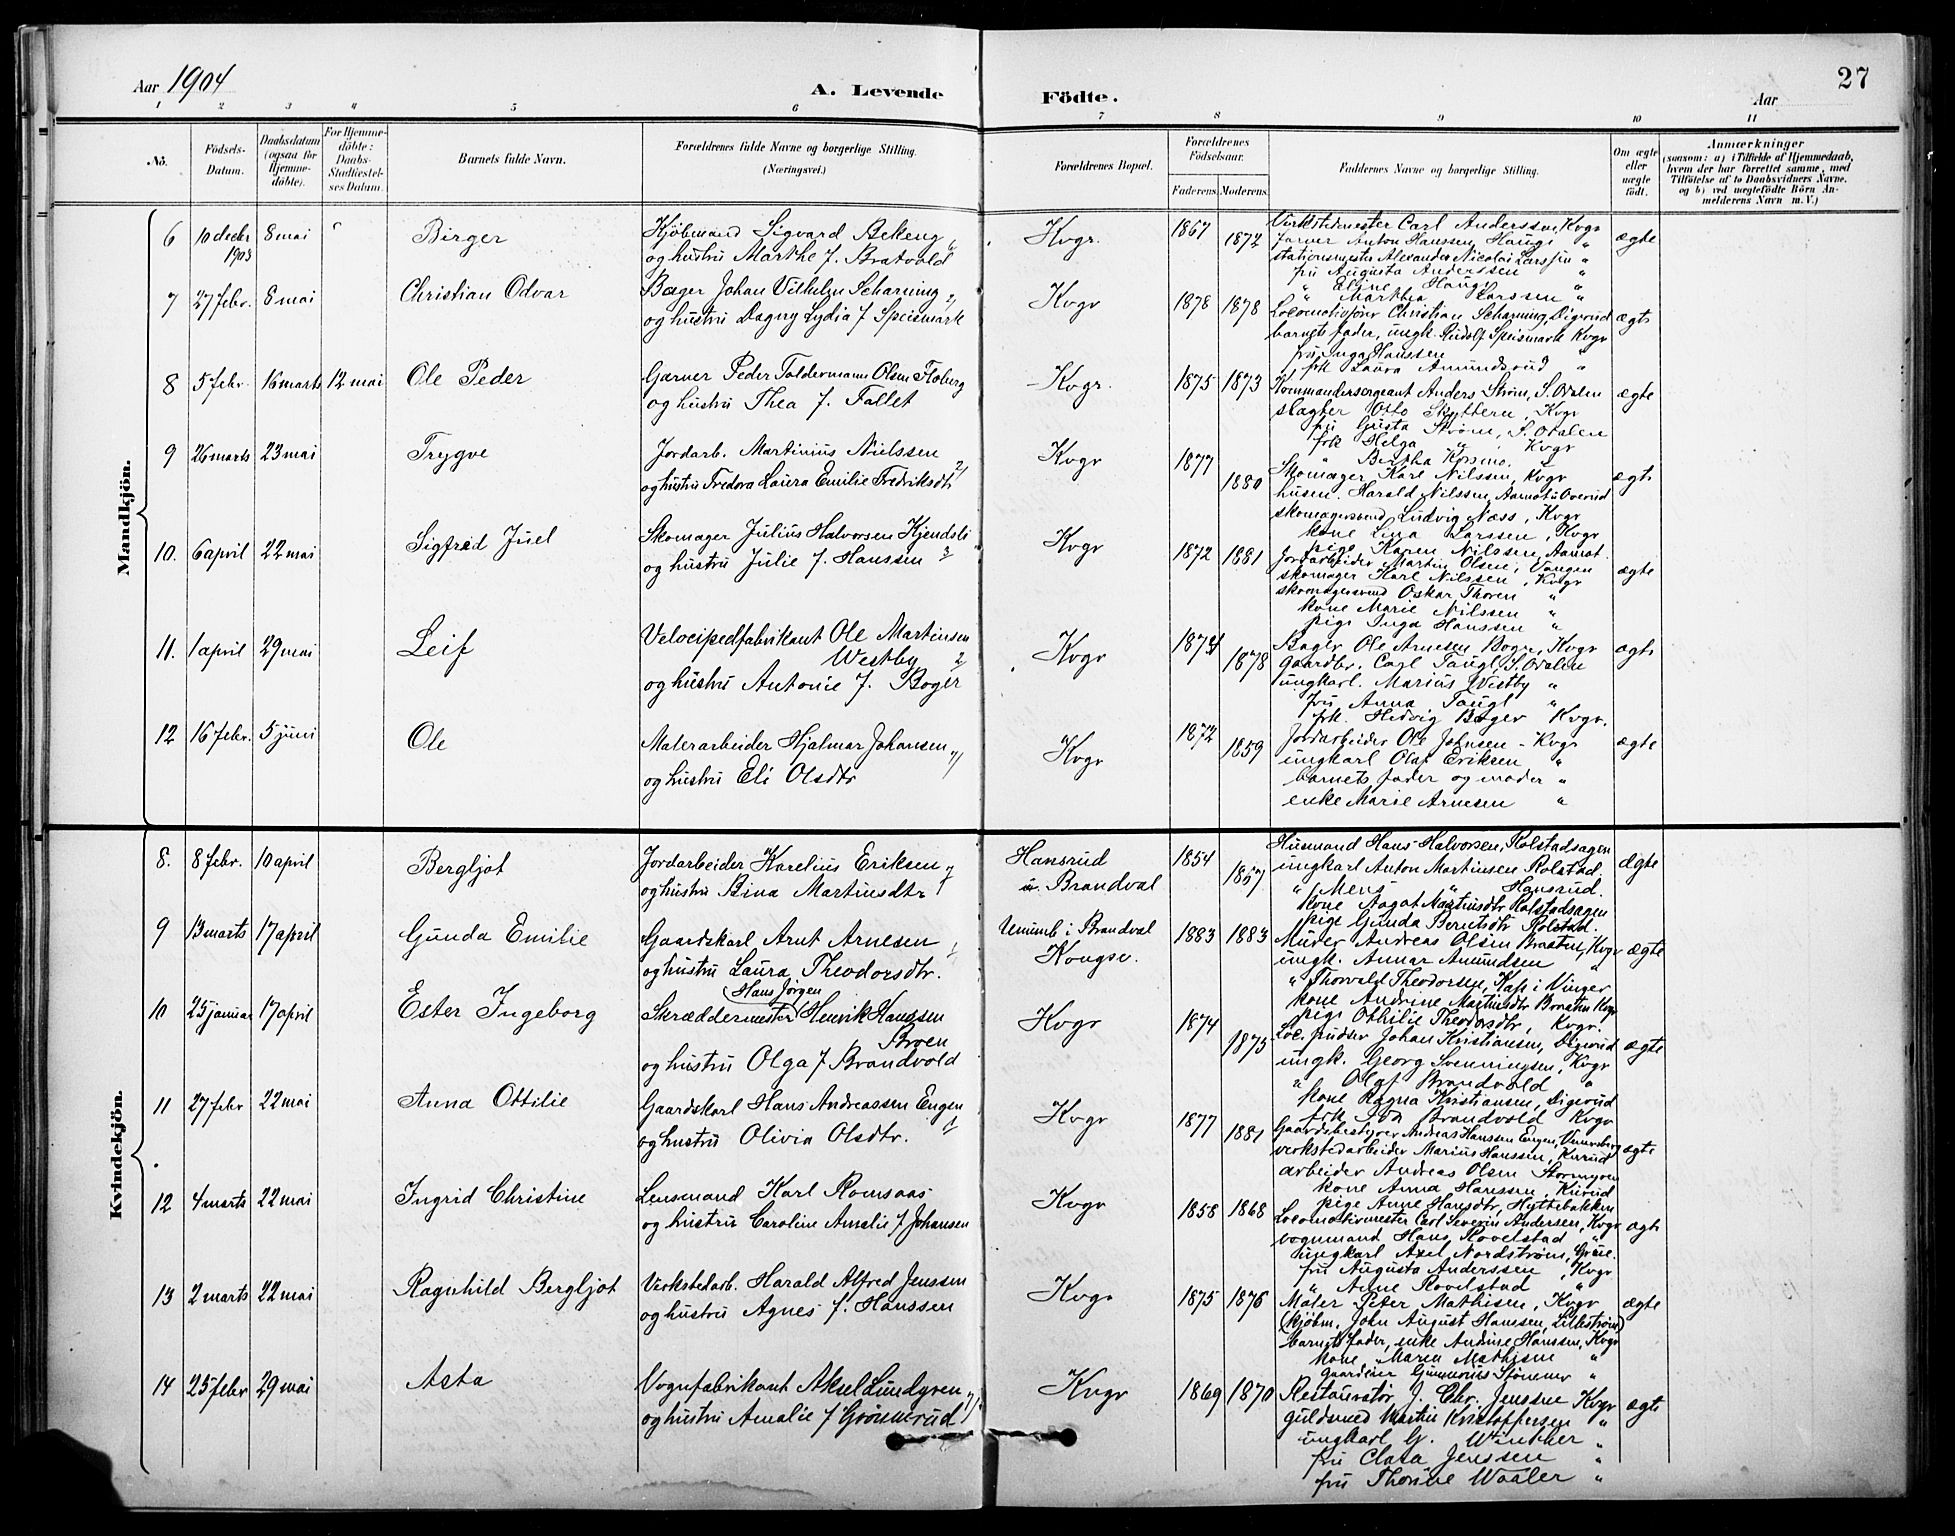 Aar 1904
A. Levende Födte.
27
Aar
1 2 3 4 5 6 7 8 9 10 11
No. Födsels-Datum. Daabsdatum (ogsaa for Hjemme-döbte). For Hjemme-döbte: Daabs-Stadfæstel-ses Datum. Barnets fulde Navn. Forældrenes fulde Navne og borgerlige Stilling. (Næringsvei.) Forældrenes Bopæl. Forældrenes Födselsaar. Faderens. Moderens. Faddernes Navne og borgerlige Stilling. Om ægte eller uægte födt. Anmærkninger
(saasom: a) i Tilfælde af Hjemmedaab,
hvem der har forrettet samme, med
Tilföielse af to Daabsvidners Navne,
og b) ved uegtefödte Börn An-
melderens Navn m. V.)
Mandkjön.
6 10 decbr 1903 8 mai Birger Kjöbmand Sigvard Bekeng
og hustru Marthe f. Bratvold
Kvgr. 1867 1872 ægte
Virkstedmester Carl Anderssen, Kvgr
farver Anton Hanssen Hauge "
stationsmester Alexander Nicolai Larssen "
fru Augusta Anderssen "
" Eline Hauge "
" Marthea Larssen "
7 27 febr. 8 mai Christian Odvar Bager Johan Vilhelm Scharning
og hustru Dagny Lydia f. Speismark
Kvgr 1878 1878 ægte
Locomotivförer Christian Scharning, Digerud
barnets fader, ungk. Rudolf Speismark Kvgr
fru Inga Hanssen "
frk Laura Amundsrud "
8 5 febr. 16 marts 12 mai Ole Peder Garver Peder Toldermann Olsen Floberg
og hustru Thea f. Fallet
Kvgr. 1875 1873 ægte
Kommandersergeant Anders Ström, S. Odalen
slagter Otto Skyttern, Kvgr
fru Grista Ström, S. Odalen
frk Helga " Kvgr
" Bertha Kosmo "
9 26 marts 23 mai Trygve Jordarb. Martinius Nielssen
og hustru Fredora Laura Emilie Fredriksdtr
Kvgr 1877 1880 ægte
Skomager Karl Nilssen, Kvgr
husm. Harald Nilssen, Aamot i Overud
skomagersvend Ludvig Næss, Kvgr
kone Lina Larssen, Kvgr
pige Karen Nilssen, Aamot.
10. 6 april 22 mai Sigfred Juel Skomager Julius Halvorsen Kjendsli
og hustru Julie f. Hanssen
Kvgr 1872 1881 ægte
Jordarbeider Martin Olsen, Vangen
skomager Karl Nilssen, Kvgr
skomagersvend Oskar Thoren "
kone Marie Nilssen "
pige Inga Hanssen "
11. 1 april 29 mai Leif Velocipedfabrikant Ole Martinsen
Westby
og hustru Antonie f. Boger
Kvgr 1874 1878 ægte
Bager Ole Arnesen Bogn, Kvgr
gaardbr. Carl Taugl, S. Odalen
ungkarl. Marius Westby "
fru Anna Taugl "
frk. Hedvig Boger Kvgr.
12 16 febr. 5 juni Ole Malerarbeider Hjalmar Johansen
og hustru Eli Olsdtr
Kvgr 1872 1859 ægte
Jordarbeider Ole Johnsen - Kvgr
ungkarl Olaf Eriksen "
barnets fader og moder "
enke Marie Arnesen "
Kvindekjön.
8. 8 febr. 10 april Bergljot Jordarbeider Karelius Eriksen
og hustru Bina Martinsdtr
Hansrud
i Brandval 1854 1857 ægte
Husmand Hans Halvorsen, Rolstadsagen
ungkarl Anton Martinsen Rolstad.
" Mens " Hansrud.
kone Aagot Martinsdtr Rolstadsagen
pige Gunda Berntsdtr Rolstad.
9 13 marts 17 april Gunda Emilie Gaardskarl Arnt Arnesen
og hustru Laura Theodorsdtr.
i Brandval
Kongsv. 1883 1883 ægte
Murer Andreas Olsen Braaten, Kvgr
ungk. Annar Amundsen "
" Thorvald Theodorsen, Kaps i Vinger
kone Andrine Martinsdtr Braaten Kvgr
pige Othilie Theodorsdtr, Kvgr.
10 25 januar 17 april Ester Ingeborg Skræddermester (Hans Jörgen) Henrik Hanssen
Broen
og hustru Olga f Brandvold
Kvgr 1874 1875 ægte
Loc. pudser Johan Kristiansen, Digerud
ungk. Georg Svenningsen, Kvgr
" Olaf Brandvold "
kone Ragna Kristiansen, Digerud
frk Ida Brandvold Kvgr
11 27 febr 22 mai Anna Ottilie Gaardskarl Hans Andreassen Engen
og hustru Olivia Olsdtr.
Kvgr 1877 1881 ægte
Gaardsbestyrer Andreas Hanssen Engen, Vennersberg
verkstedarbeider Marius Hanssen, Kurud
arbeider Andreas Olsen Stormyren
kone Anna Hanssen, Kurud
pige Anne Hansdtr, Hyttebakken
12 4 marts 22 mai Ingrid Christine Lensmand Karl Romsaas
og hustru Caroline Amalie f Johansen
Kvgr 1858 1868 ægte
Locomotivmester Carl Severin Andersen, Kvgr
vognmand Hans Rovelstad "
ungkarl Axel Nordström, Grue.
fru Augusta Anderssen, Kvgr
" Anne Rovelstad "
13 2 marts 22 mai Ragnhild Bergljot Verkstedarb. Harald Alfred Jenssen
og hustru Agnes f. Hanssen
Kvgr 1875 1876 ægte
Maler Peter Mathisen, Kvgr
(kjöbm. John August Hanssen, Lilleström)
barnets fader, enke Andrine Hanssen, Kvgr
kone Maren Mathisen "
gaardeier Gunnerius Stömner "
14 25 febr 29 mai Asta Vognfabrikant Aksel Lundgren
og hustru Amalie f Grönnerud
Kvgr 1869 1870 ægte
Restauratör J. Chr. Jenssen Kvgr
guldsmed Martin Kristoffersen "
ungkarl G. Winther "
fru Clara Jenssen "
fru Thorine Waaler "